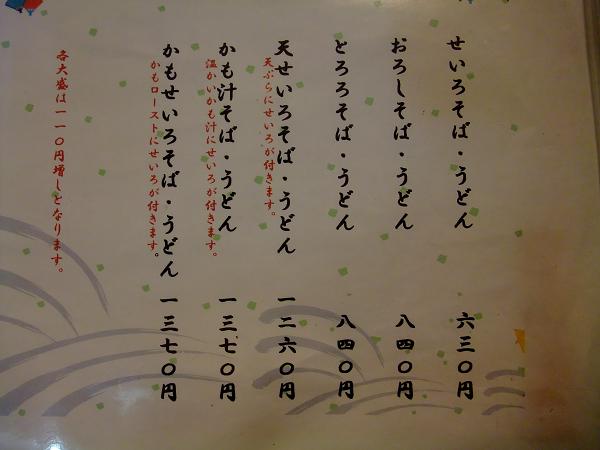 せいろそば・うどん 六三〇円
おろしそば・うどん 八四〇円
とろろそば・うどん 八四〇円
天せいろそば・うどん 一二六〇円
天ぷらにせいろが付きます。
かも汁そば・うどん 一三七〇円
温かいかも汁にせいろが付きます。
かもせいろそば・うどん 一三七〇円
かもローストにせいろが付きます。
各大盛は一一〇円増しとなります。